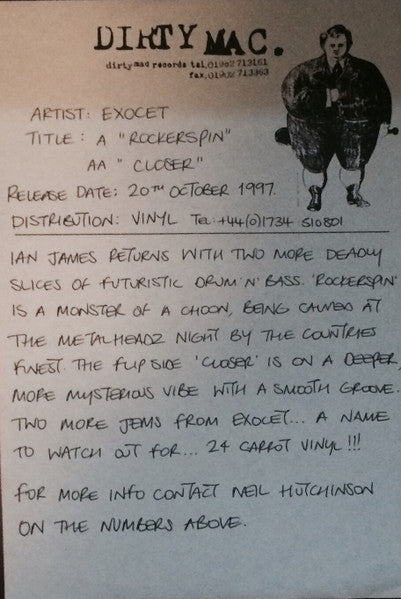 DIRTY MAC.
dirty mac records tel.01902 713161
fax.01902 713363
ARTIST: EXOCET
TITLE: A "ROCKERSPIN"
AA "CLOSER"
RELEASE DATE: 20TH OCTOBER 1997.
DISTRIBUTION: VINYL Tel: +44(0)1734 510801
IAN JAMES RETURNS WITH TWO MORE DEADLY
SLICES OF FUTURISTIC DRUM 'N' BASS. 'ROCKERSPIN'
IS A MONSTER OF A CHOON, BEING CANED AT
THE METALHEADZ NIGHT BY THE COUNTRIES
FINEST. THE FLIP SIDE 'CLOSER' IS ON A DEEPER,
MORE MYSTERIOUS VIBE WITH A SMOOTH GROOVE.
TWO MORE JEMS FROM EXOCET... A NAME
TO WATCH OUT FOR... 24 CARROT VINYL!!!
FOR MORE INFO CONTACT NEIL HUTCHINSON
ON THE NUMBERS ABOVE.